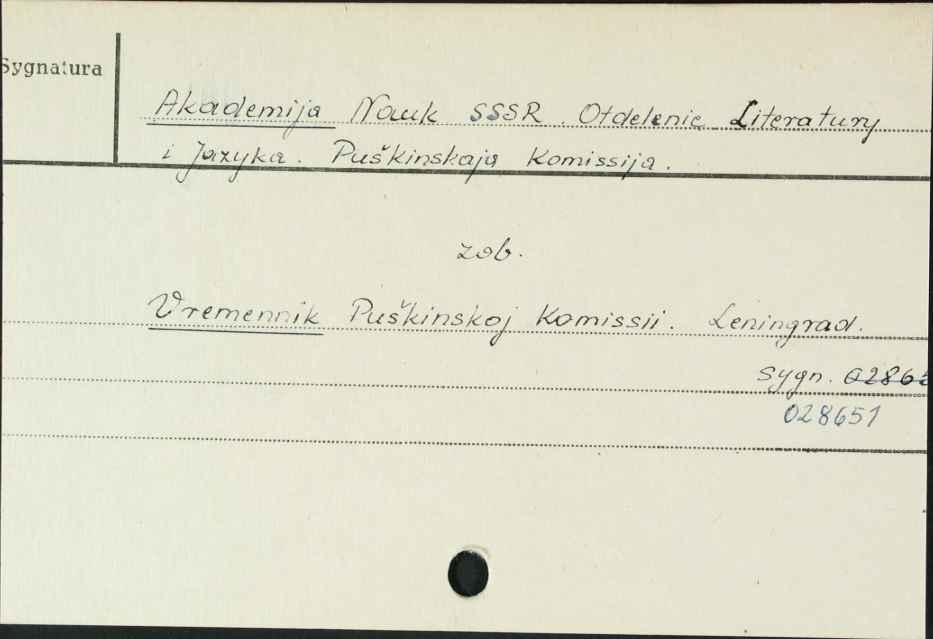 Sygnatura
Akademija Nauk SSSR. Otdelenie Literatury
i Jazyka. Puškinskaja Komissija.
zob.
Vremennik Puškinskoj Komissii. Leningrad.
Sygn.
028651